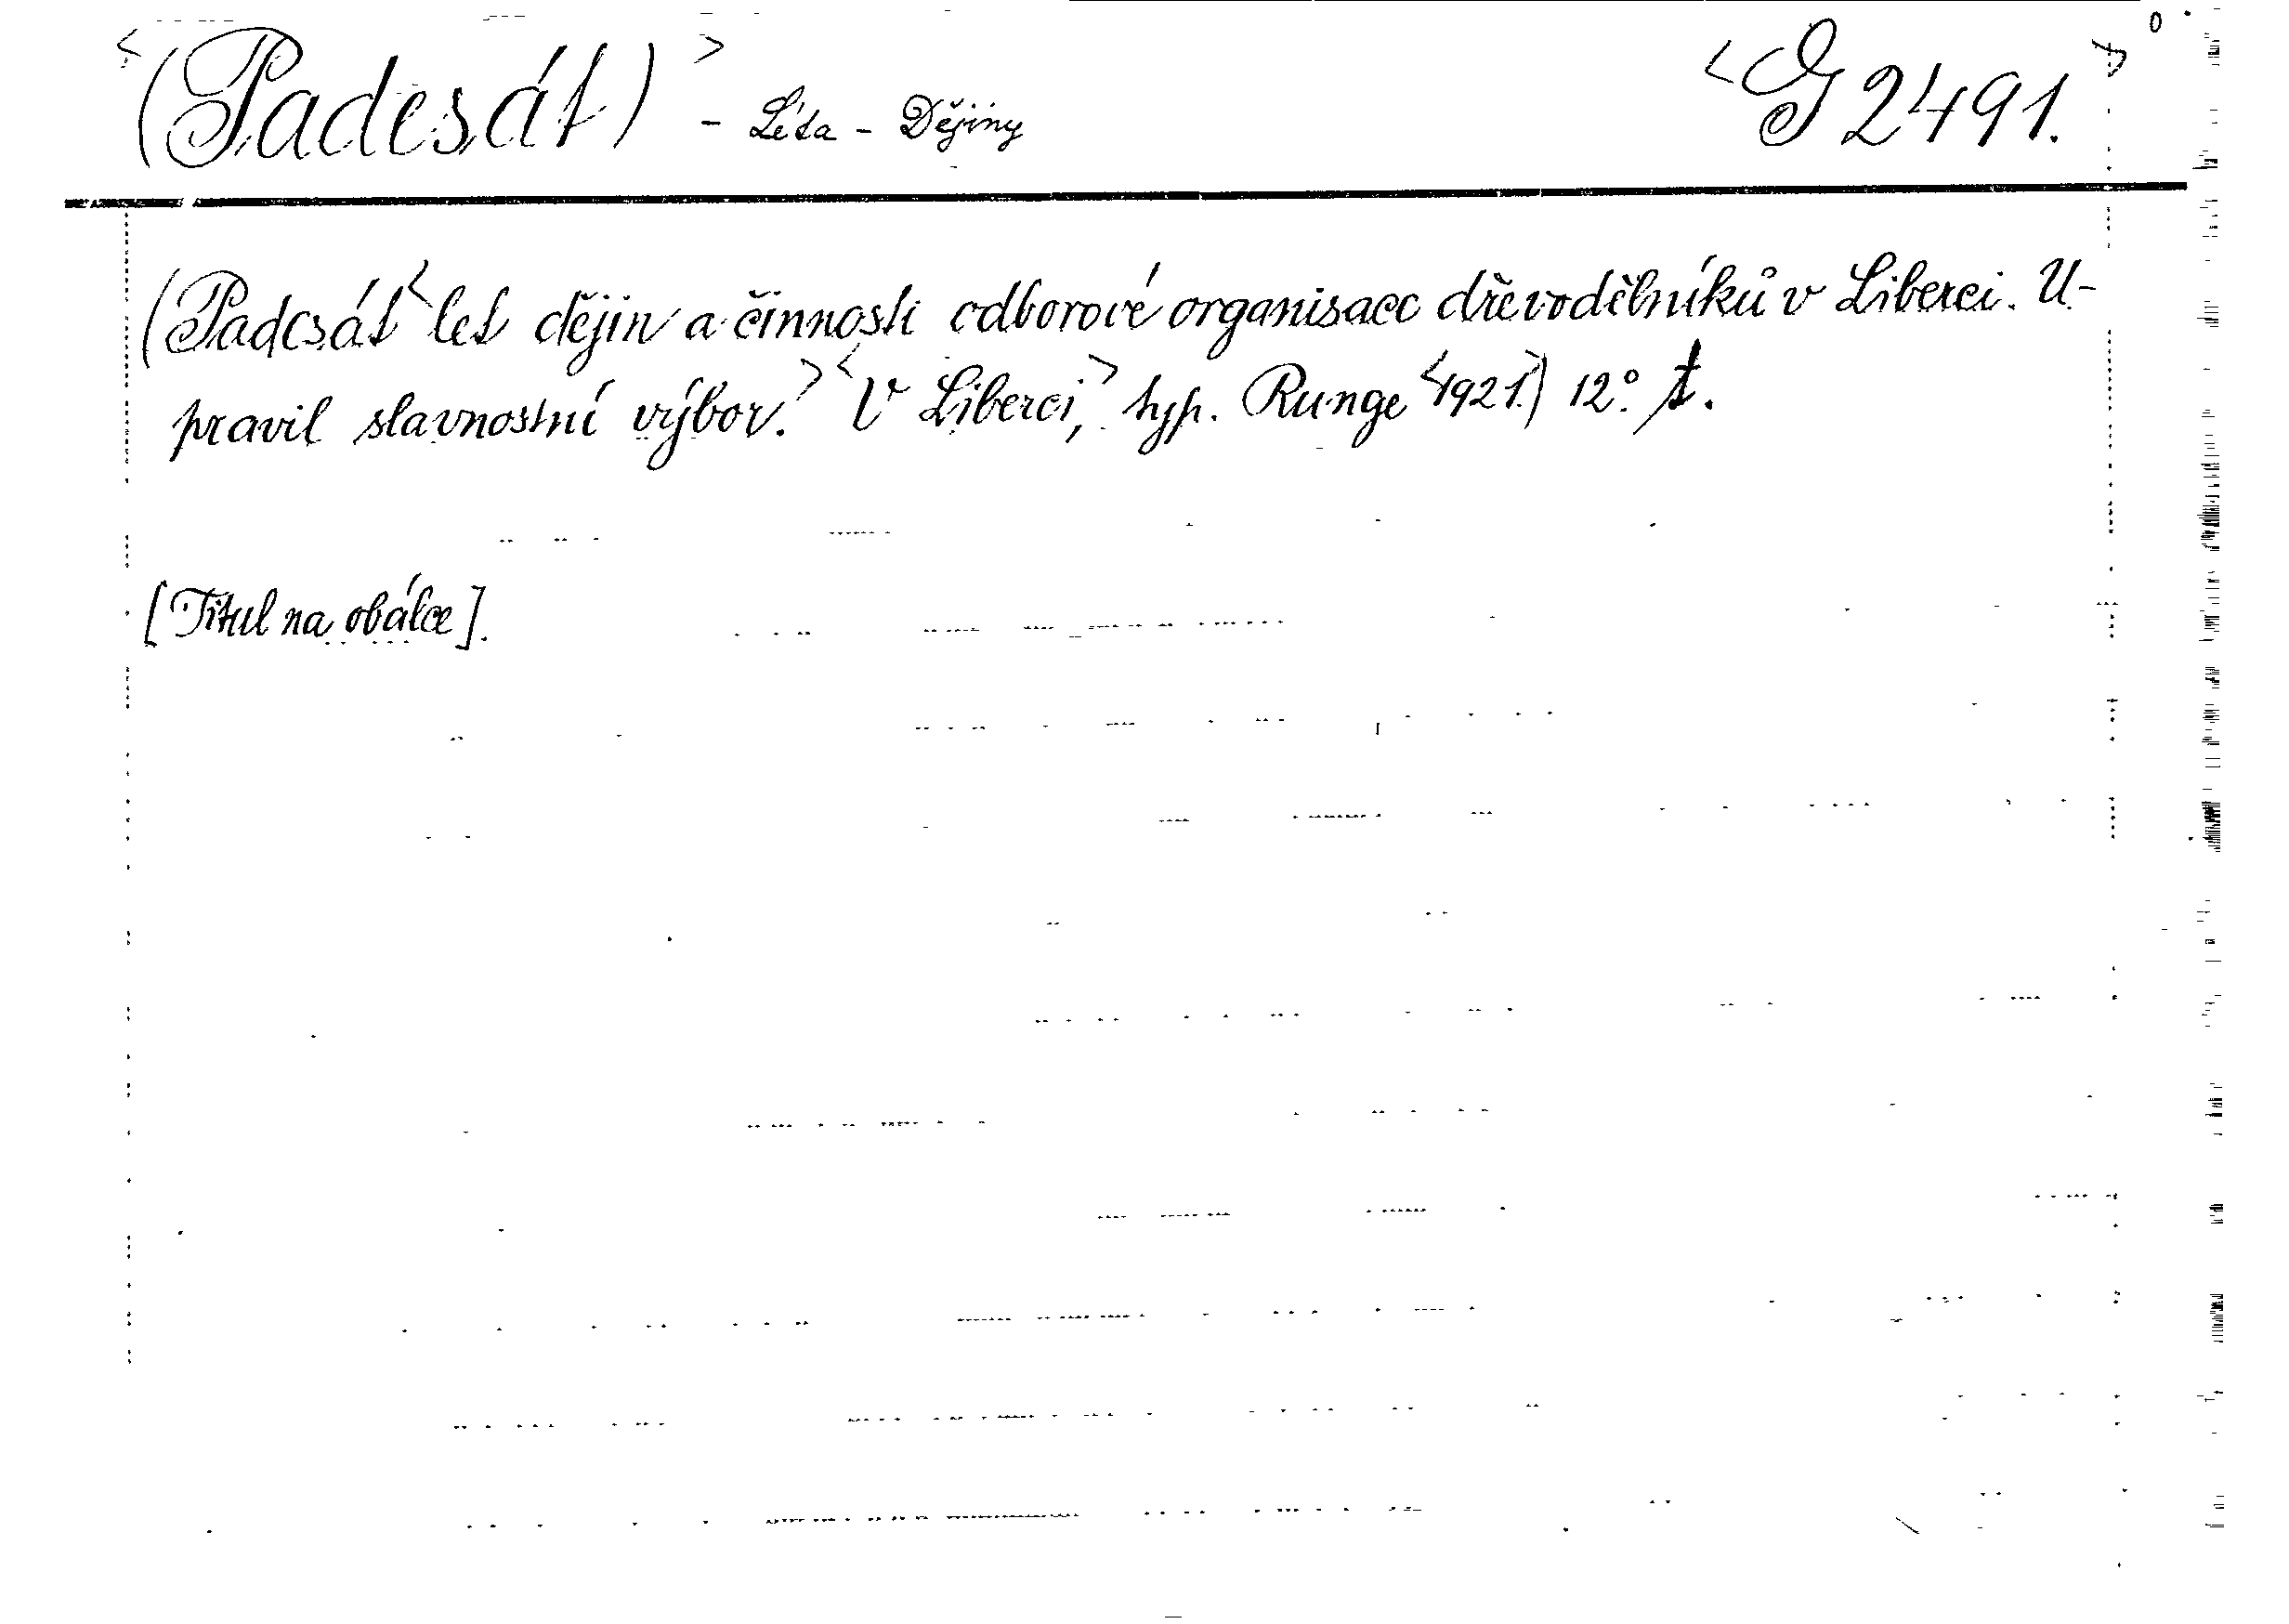 <(Padesát)> - Léta - Dějiny <G 2491.>
(Padesát <let dějin a činnosti odborové organisace dřevodělníků v Liberci. U-
pravil slavnostní výbor.> <V Liberci,> typ. Runge <1921.>) 12°.
[Titul na obálce].